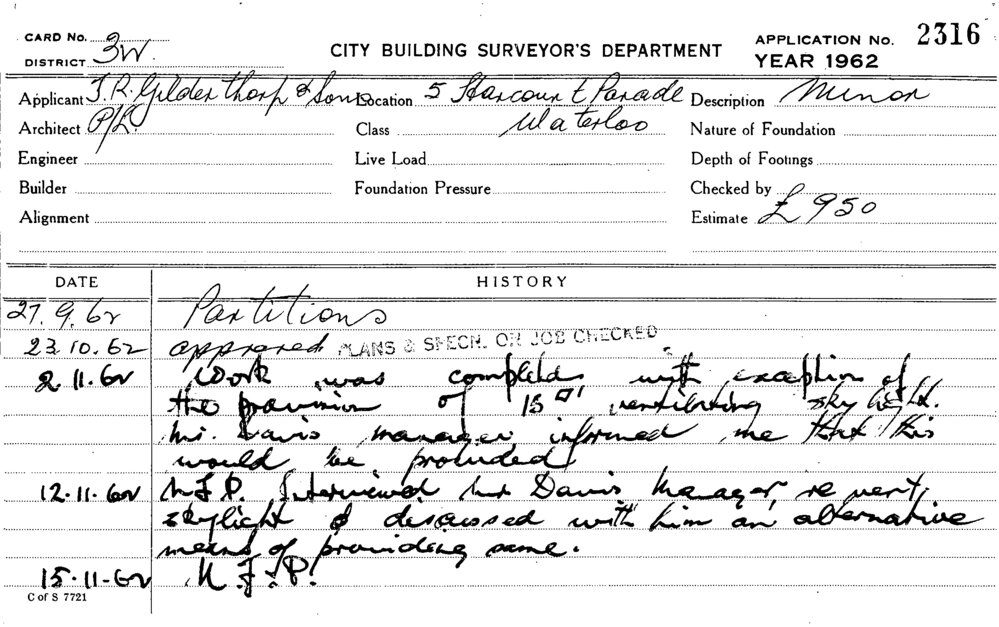 CARD No.
DISTRICT 3W.
CITY BUILDING SURVEYOR'S DEPARTMENT
APPLICATION No. 2316
YEAR 1962
Applicant J.R. Gilderthorp & Sons Location 5 Harcourt Parade Description Minor
Architect P/L. Class Waterloo Nature of Foundation
Engineer Live Load Depth of Footings
Builder Foundation Pressure Checked by
Alignment Estimate £950
DATE HISTORY
27.9.62 Partitions
23.10.62 approved PLANS & SPECN. ON JOB CHECKED
2.11.62 Work was completed with exception of
the provision of 15□' ventilating skylight.
Mr. Davis manager informed me that this
would be provided
12.11.62 N.F.P. Interviewed Mr Davis Manager, re vent,
skylight & discussed with him an alternative
means of providing same.
15.11.62 N.F.P.
C of S 7721